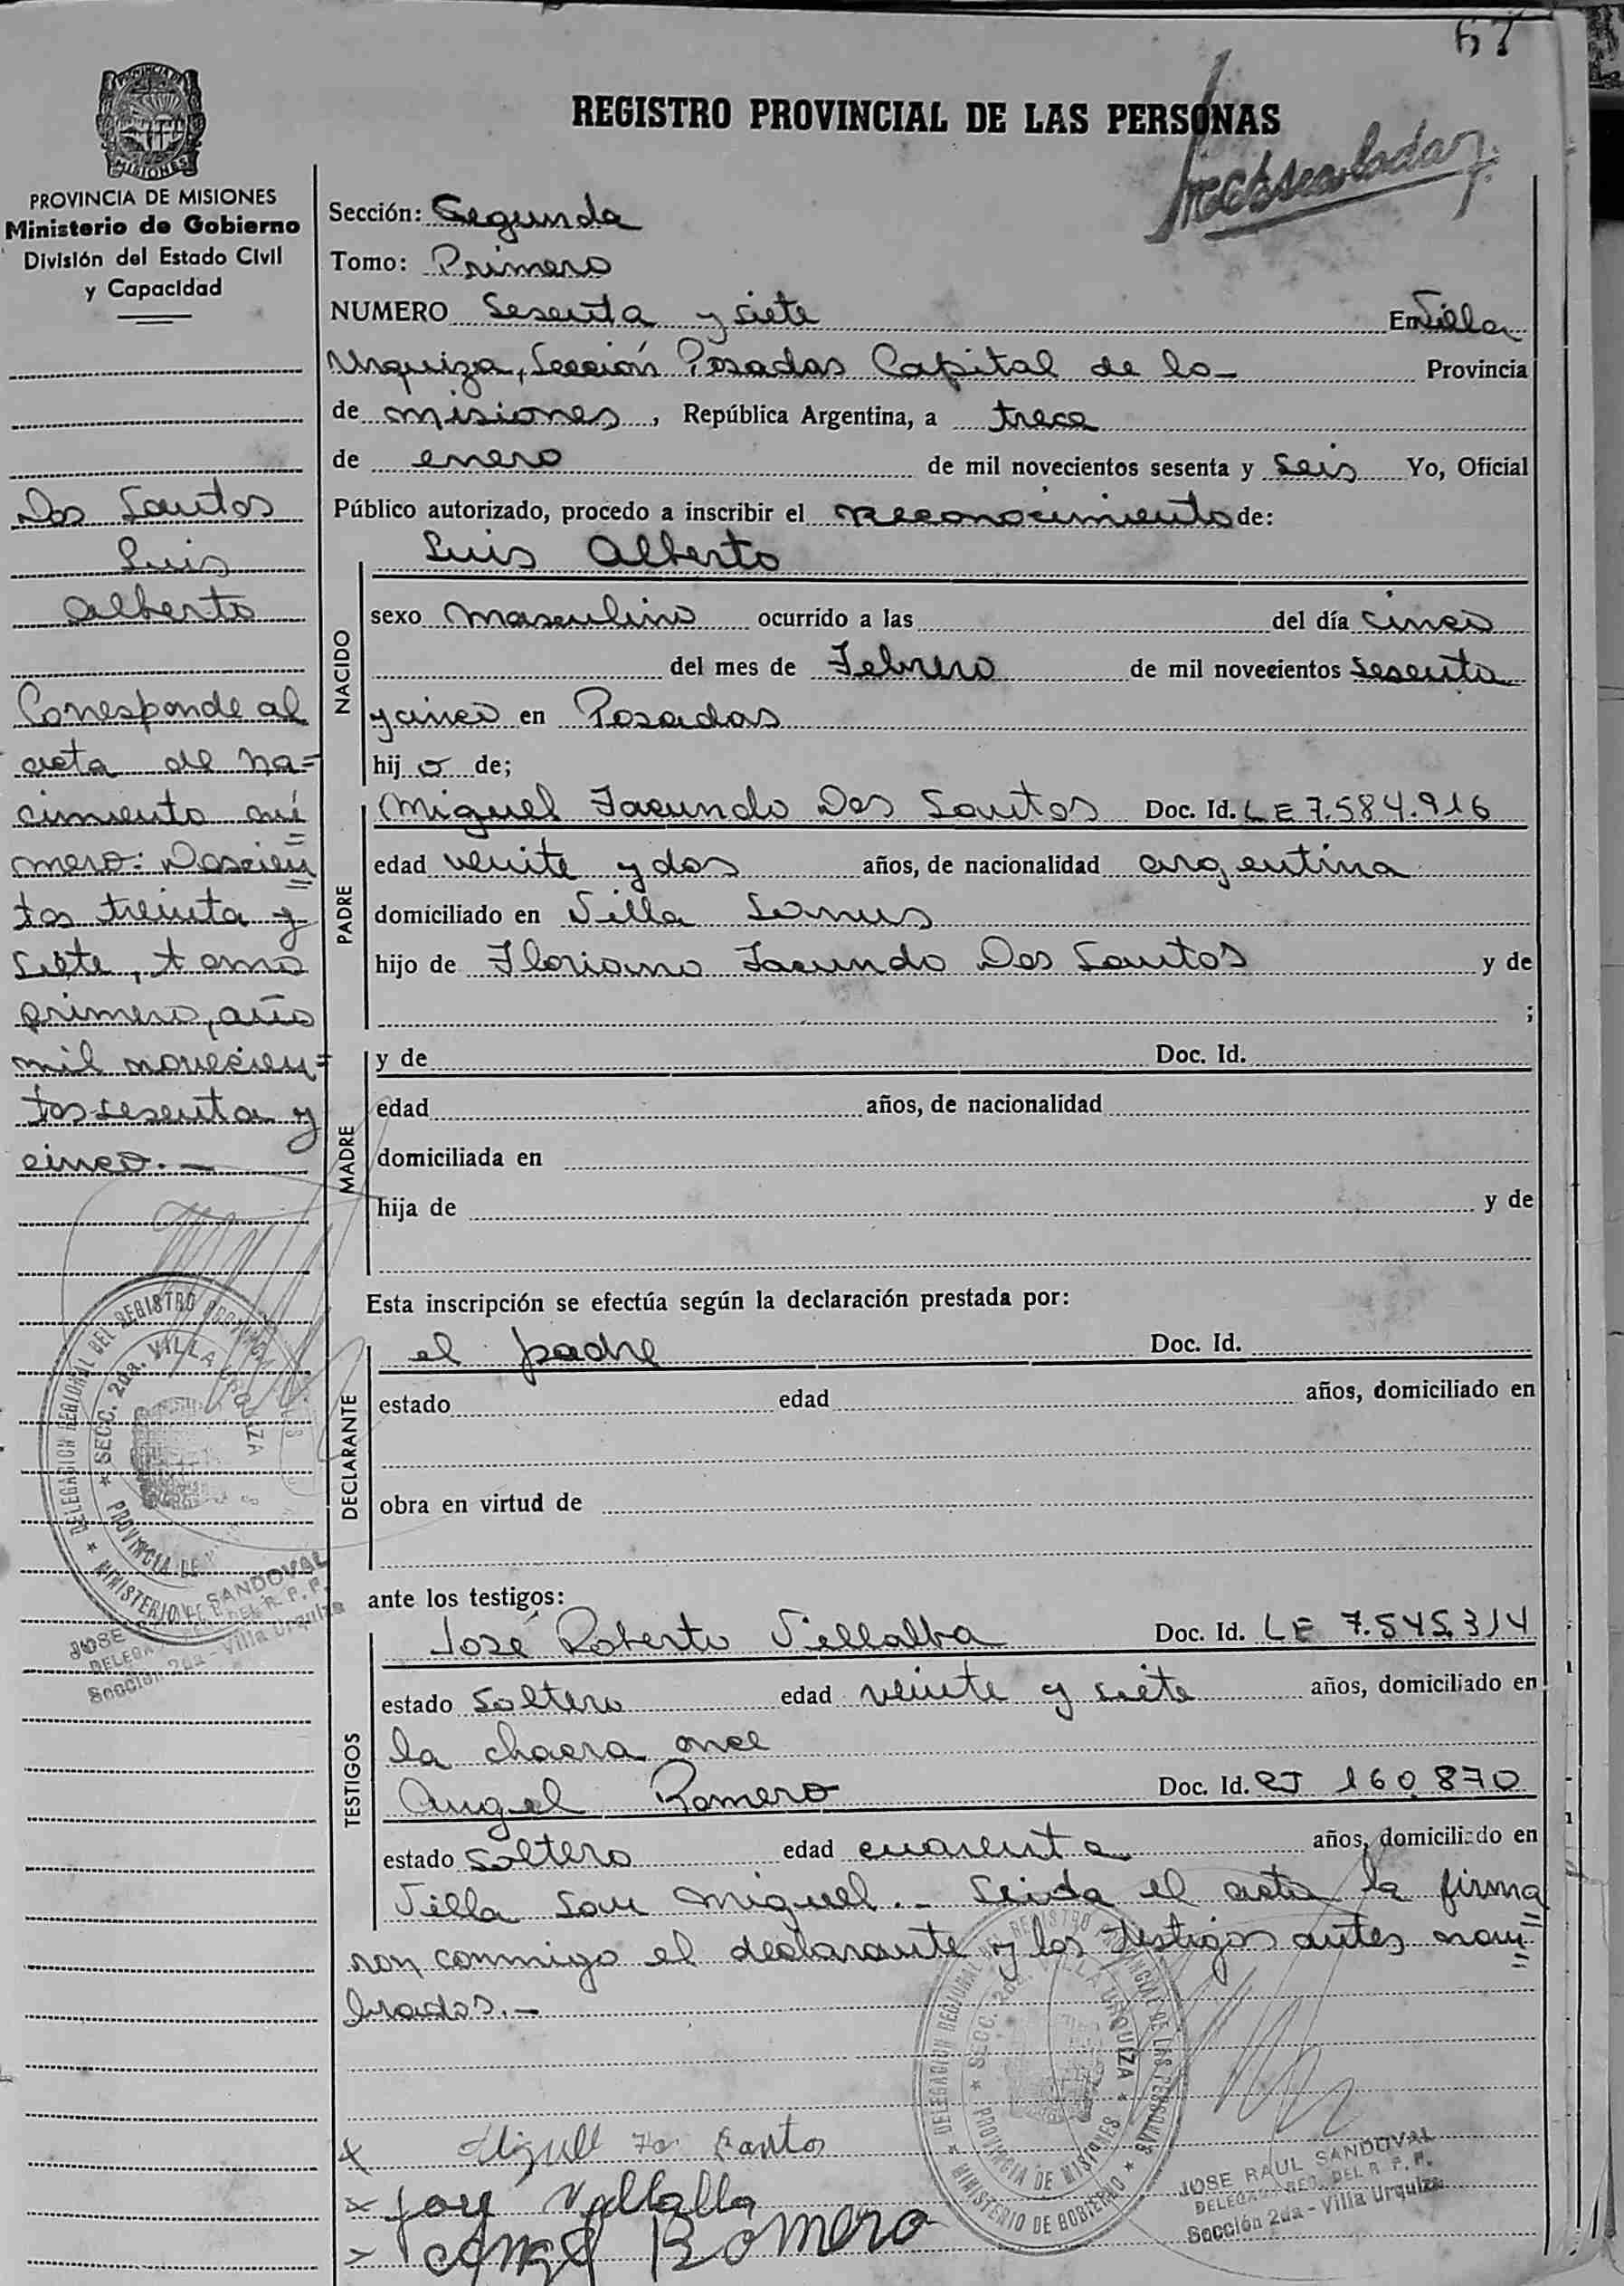 67
REGISTRO PROVINCIAL DE LAS PERSONAS
PROVINCIA DE
MISIONES
PROVINCIA DE MISIONES
Ministerio de Gobierno
División del Estado Civil
y Capacidad
Dos Santos
Luis
Alberto
Corresponde al
acta de na=
cimiento nú=
mero: Doscien=
tos treinta y
siete, tomo
primero, año
mil novecien=
tos sesenta y
cinco.-
Sección: Segunda
Tomo: Primero
NUMERO Sesenta y siete En Villa
Urquiza, Sección Posadas Capital de la- Provincia
de misiones, República Argentina, a trece
de enero de mil novecientos sesenta y seis Yo, Oficial
Público autorizado, procedo a inscribir el reconocimiento de:
NACIDO
Luis Alberto
sexo masculino ocurrido a las del día cinco
del mes de Febrero de mil novecientos sesenta
y cinco en Posadas
hijo de;
PADRE
Miguel Facundo Dos Santos Doc. Id. LE 7.584.916
edad veinte y dos años, de nacionalidad argentina
domiciliado en Villa Lanus
hijo de Floriano Facundo Dos Santos y de
;
MADRE
y de Doc. Id.
edad años, de nacionalidad
domiciliada en
hija de y de
Esta inscripción se efectúa según la declaración prestada por:
DECLARANTE
el padre Doc. Id.
estado edad años, domiciliado en
obra en virtud de
ante los testigos:
TESTIGOS
José Roberto Villalba Doc. Id. LE 7.545.314
estado soltero edad veinte y siete años, domiciliado en
la chacra once
Angel Romero Doc. Id. CI 160.870
estado soltero edad cuarenta años, domiciliado en
Villa San Miguel.- Leida el acta la firma=
ron conmigo el declarante y los testigos antes nom=
brados.-
DELEGACION REGIONAL DEL REGISTRO PROVINCIAL
SECC. 2da. VILLA URQUIZA
PROVINCIA DE
MINISTERIO DE
JOSE SANDOVAL
DELEG. DEL R. P. P.
Sección 2da - Villa Urquiza
DELEGACION REGIONAL DEL REGISTRO PROVINCIAL DE LAS PERSONAS
SECC. 2da. VILLA URQUIZA
PROVINCIA DE MISIONES
MINISTERIO DE GOBIERNO
Miguel Santos
José Villalba
Angel Romero
JOSE RAUL SANDOVAL
DELEGADO REG. DEL R. P. P.
Sección 2da - Villa Urquiza